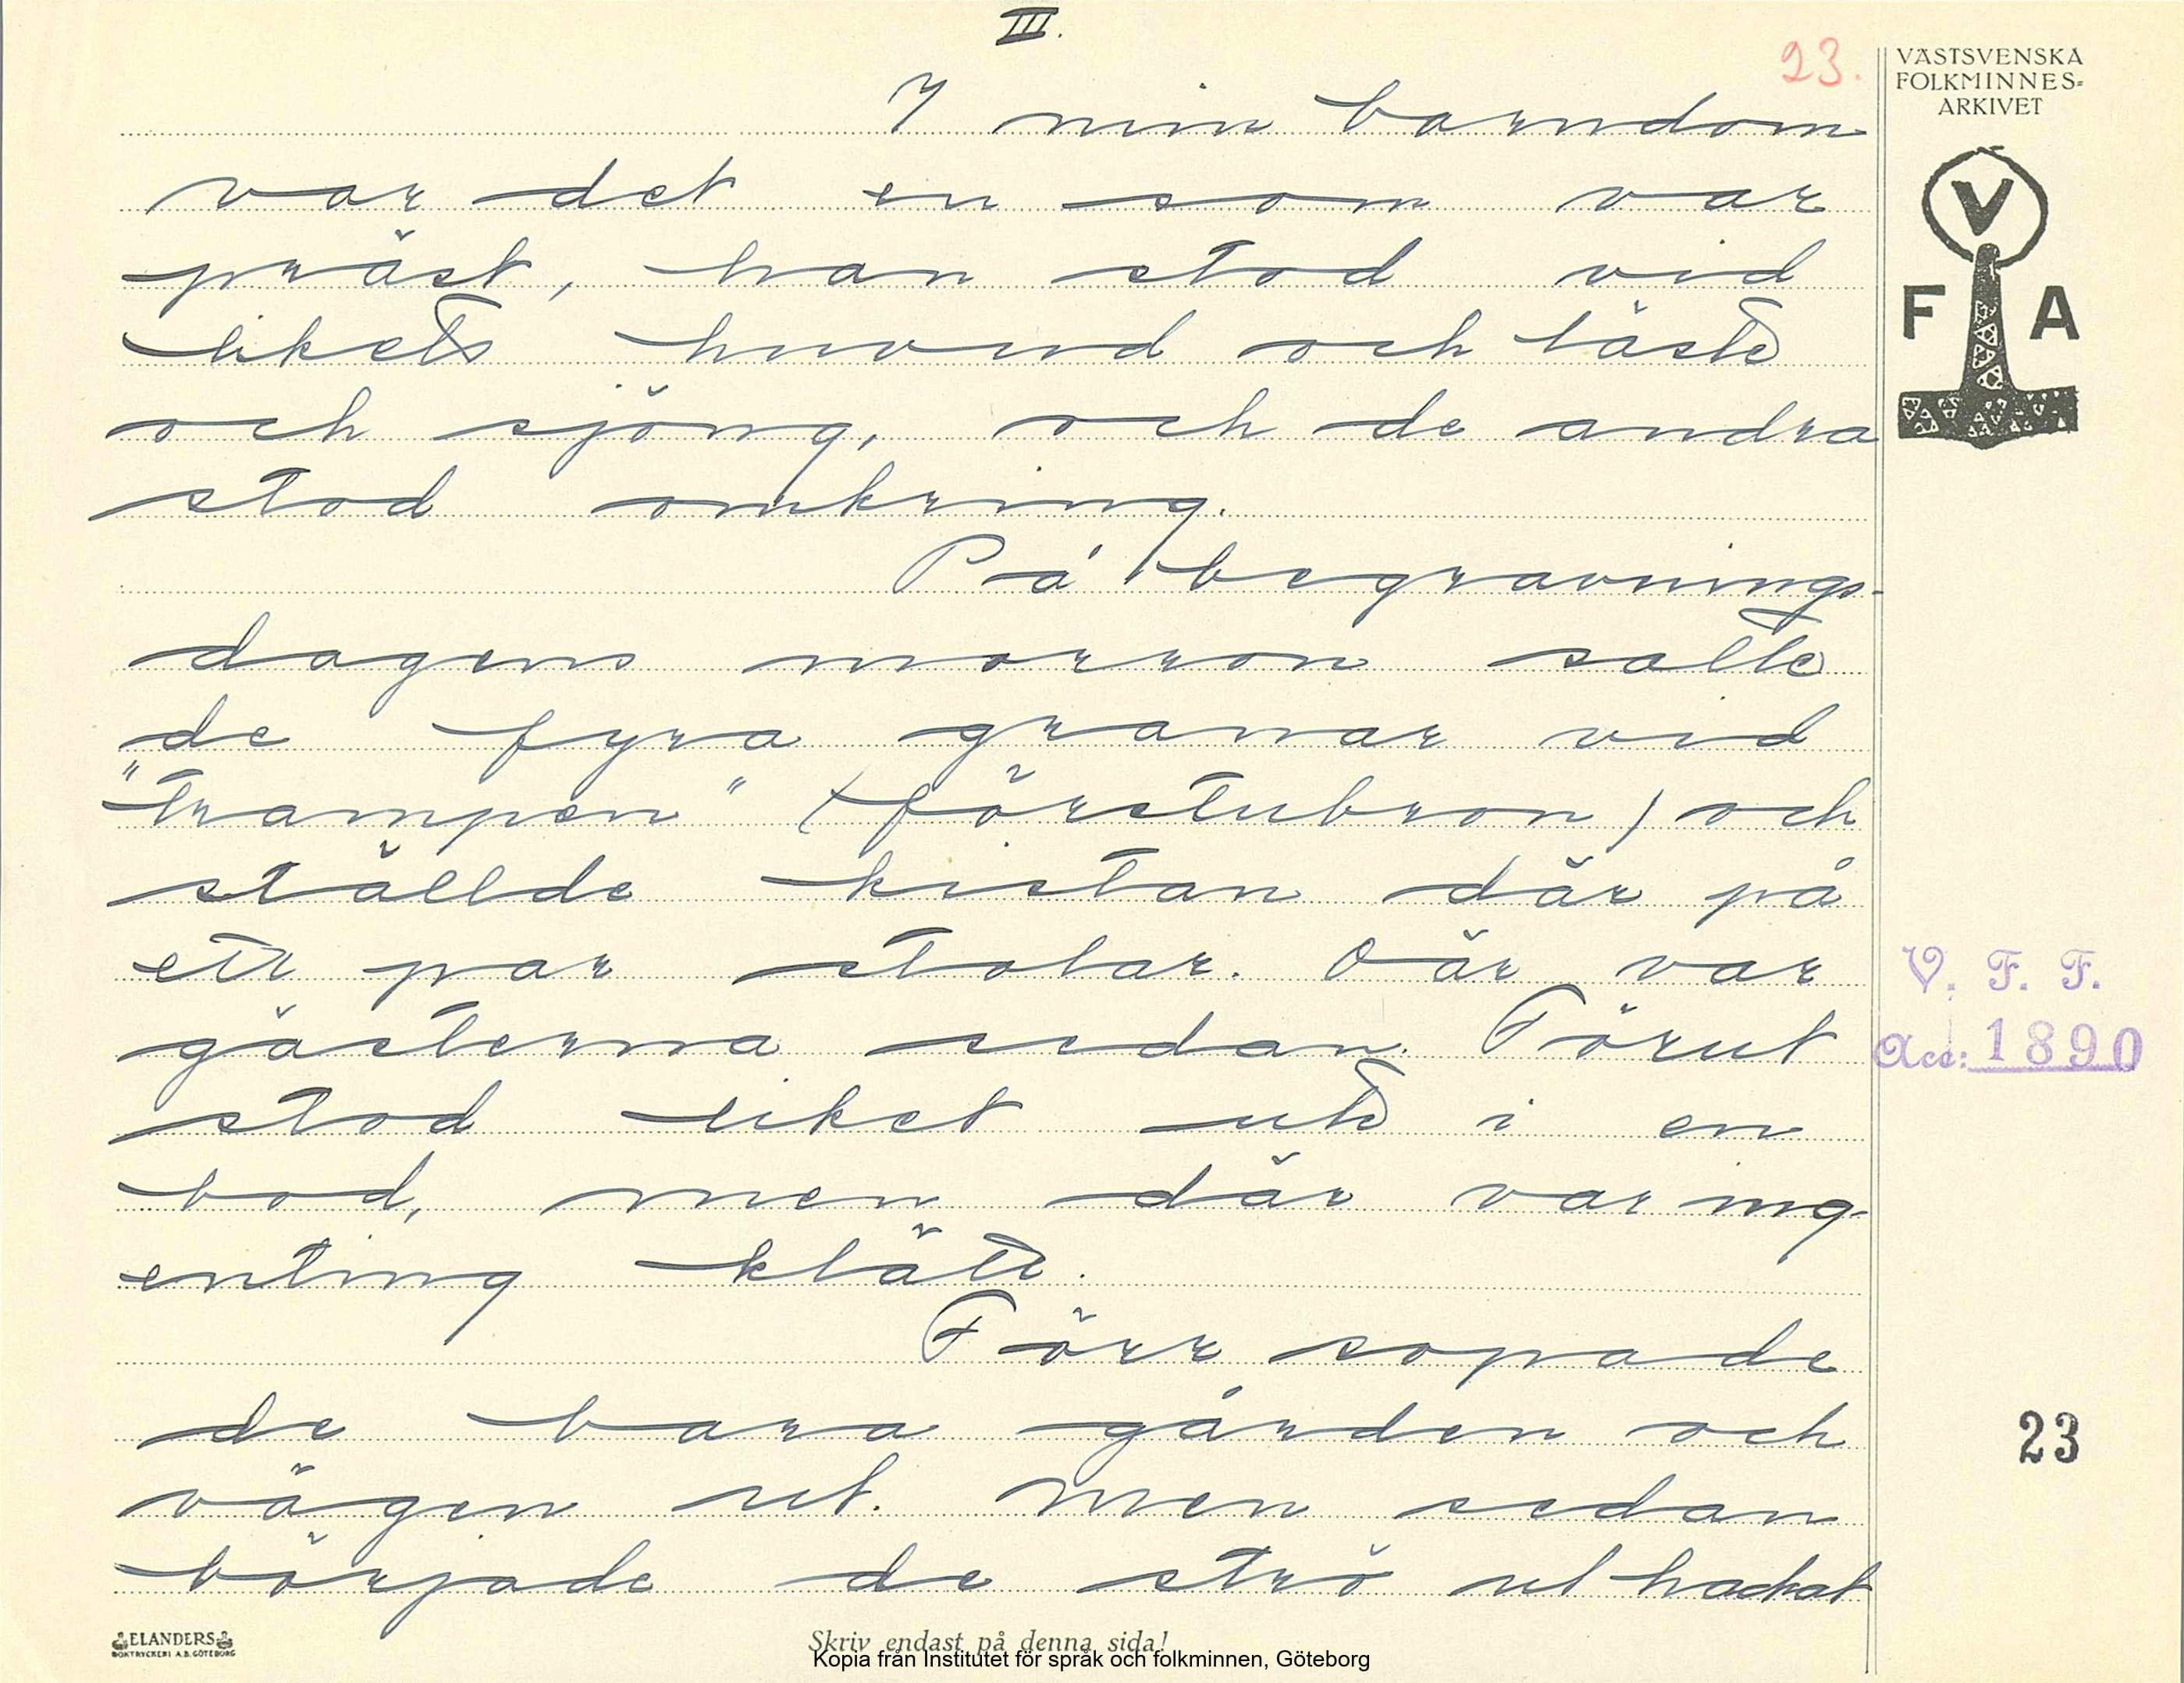 III.
23.
VÄSTSVENSKA
FOLKMINNES-
ARKIVET
V
F A
I min barndom
var det en som var
präst, han stod vid
likets huvud och läste
och sjöng, och de andra
stod omkring.
På begravnings-
dagens morron satte
de fyra granar vid
"trampen" (förstubron) och
ställde kistan där på
ett par stolar. Där var
gästerna sedan. Förut
stod liket ute i en
bod, men där var ing-
enting klätt.
Förr sopade
de bara gården och
vägen ut. Men sedan
började de strö ut hackat
V. F. F.
Acc: 1890
23
ELANDERS
BOKTRYCKERI A.B. GÖTEBORG
Skriv endast på denna sida!
Kopia från Institutet för språk och folkminnen, Göteborg